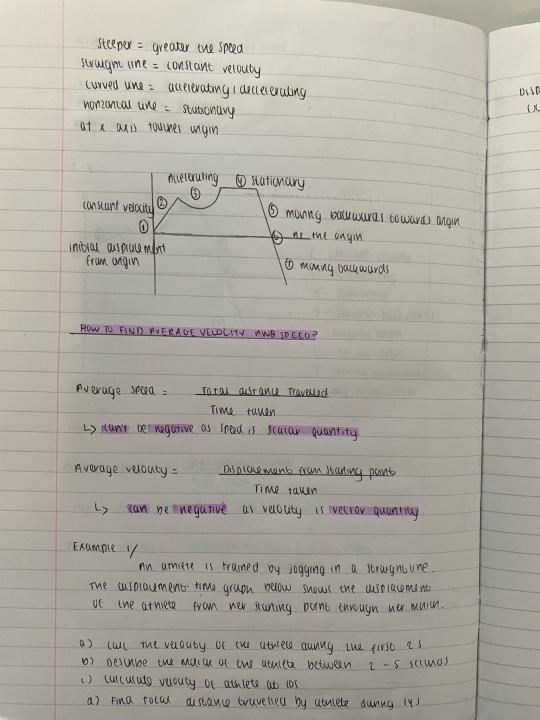 steeper = greater the speed
straight line = constant velocity
curved line = accelerating / decelerating
horizontal line = stationary
at x axis touches origin
Accelerating ④ stationary
③
constant velocity ②
⑤ moving backwards towards origin
①
⑥ At the origin
initial displacement
from origin
⑦ moving backwards
HOW TO FIND AVERAGE VELOCITY AND SPEED?
Average speed = Total distance Travelled
Time taken
↳ can't be negative as speed is scalar quantity
Average velocity = Displacement from starting point
Time taken
↳ can be negative as velocity is vector quantity
Example 1/
An athlete is trained by jogging in a straight line.
The displacement-time graph below shows the displacement
of the athlete from her starting point through her motion.
a) calc the velocity of the athlete during the first 2s
b) Describe the motion of the athlete between 2 - 5 seconds
c) calculate velocity of athlete at 10s
d) Find total distance travelled by athlete during 14s